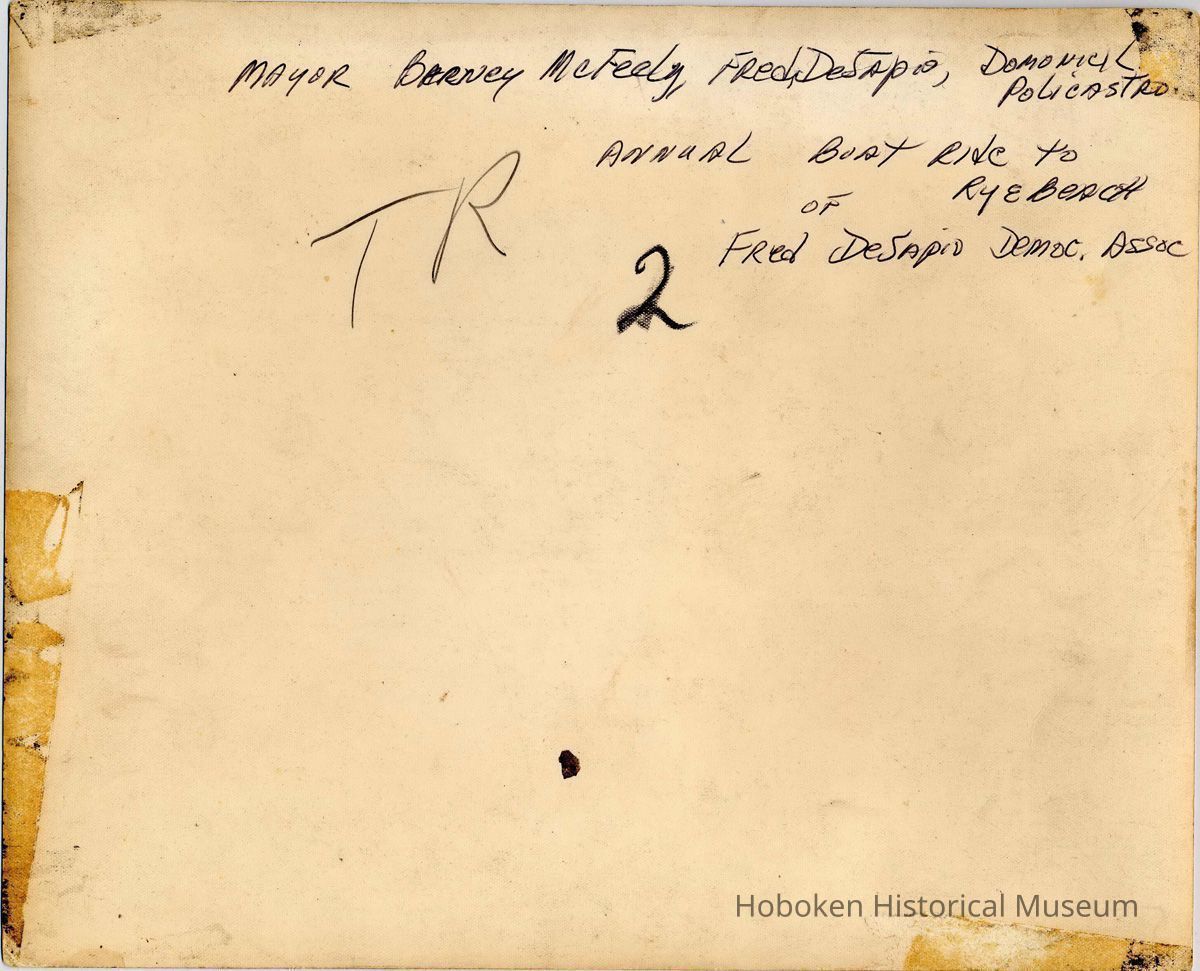 MAYOR BARNEY McFeely, FRed, DeSapio, DOMONICK
POLiCASTRO
ANNUAL BOAT RIdE to
RyE BEACH
OF
FRed DeSapio Democ. Assoc
TR
2
Hoboken Historical Museum